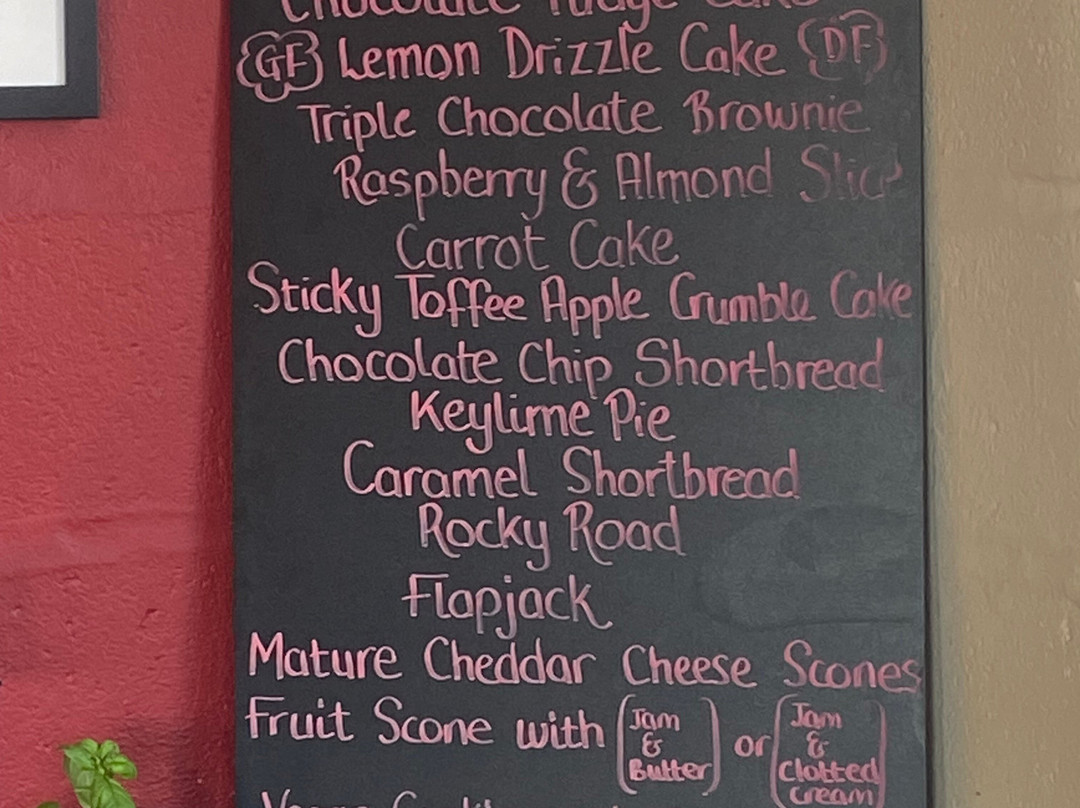 Chocolate Fudge Cake
GF Lemon Drizzle Cake DF
Triple Chocolate Brownie
Raspberry & Almond Slice
Carrot Cake
Sticky Toffee Apple Crumble Cake
Chocolate Chip Shortbread
Keylime Pie
Caramel Shortbread
Rocky Road
Flapjack
Mature Cheddar Cheese Scones
Fruit Scone with (Jam & Butter) or (Jam & Clotted Cream)